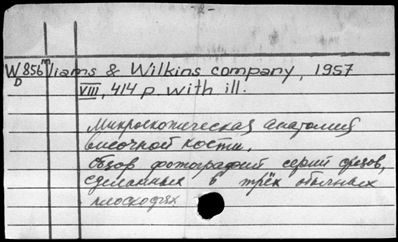 -2-
W 856 m
D
liams & Wilkins company, 1957
VIII, 414 p. with ill.
Микроскопическая анатомия
височной кости.
Обзор фотографий серий срезов,
сделанных в трёх обычных
плоскостях